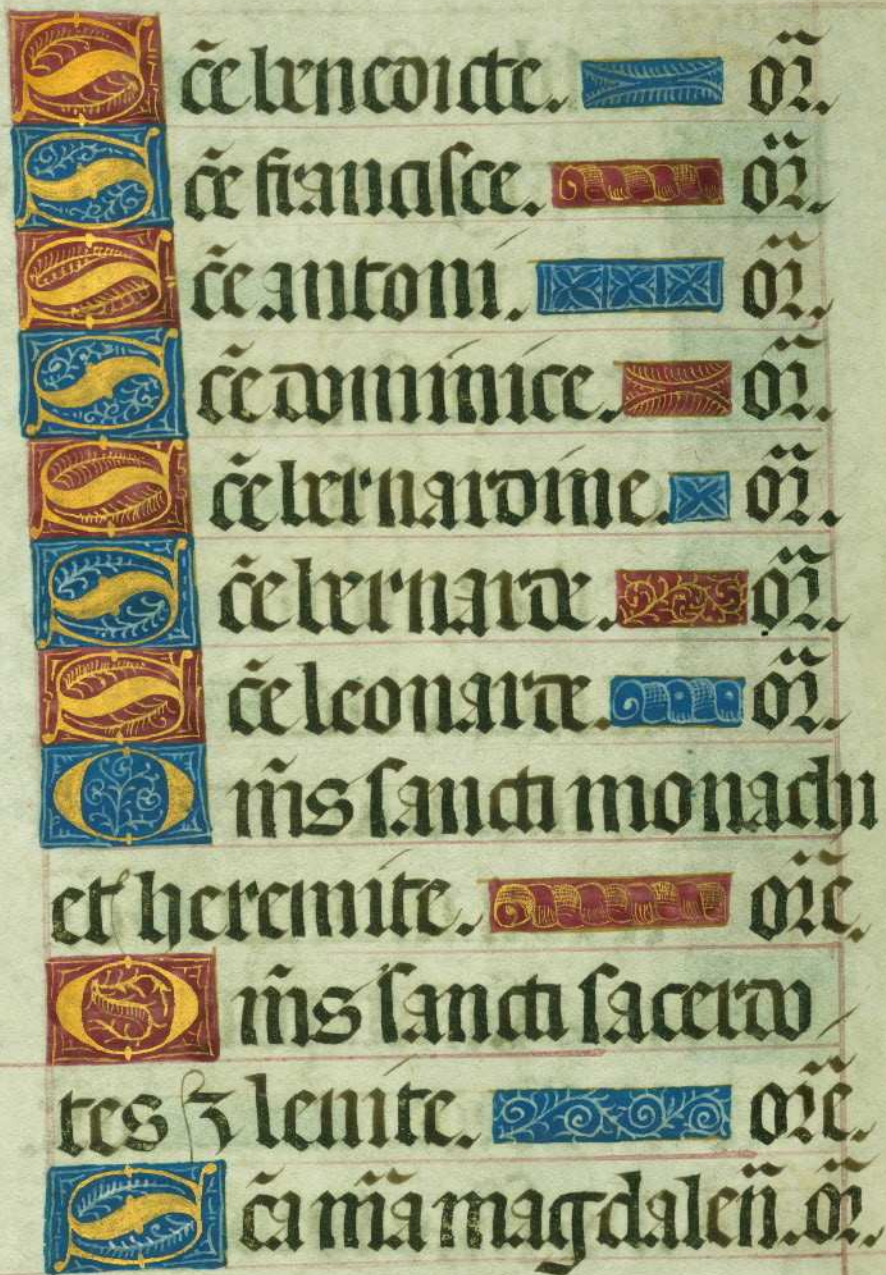 Sc̄e benedicte. or̄.
Sc̄e francisce. or̄.
Sc̄e antoni. or̄.
Sc̄e dominice. or̄.
Sc̄e bernardine. or̄.
Sc̄e bernarde. or̄.
Sc̄e leonarde. or̄.
Om̄s sancti monachi
et heremite. or̄e.
Om̄s sancti sacerdo
tes ⁊ leuite. or̄e.
Sc̄a mīa magdaleñ. or̄.